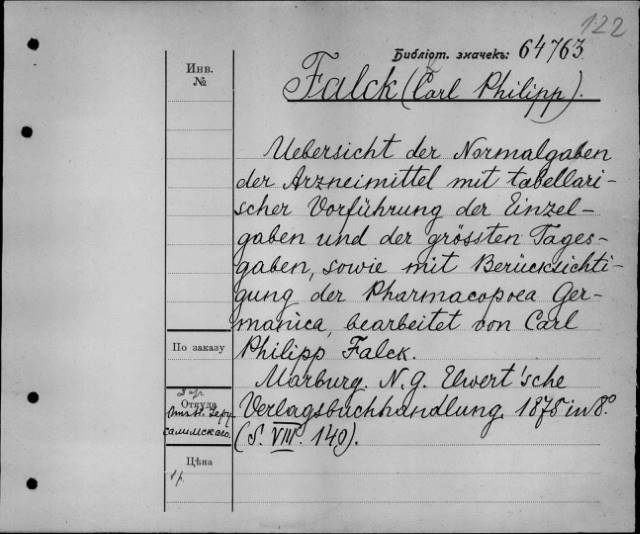 122
Библіот. значекъ: 64763
Инв.
№
Falck (Carl Philipp).
Uebersicht der Normalgaben
der Arzneimittel mit tabellari-
scher Vorführung der Einzel-
gaben und der grössten Tages-
gaben, sowie mit Berücksichti-
gung der Pharmacopoea Ger-
manica, bearbeitet von Carl
Philipp Falck.
Marburg. N. G. Elwert'sche
Verlagsbuchhandlung. 1875 in 8.º
(S. VIII. 140).
По заказу
Откуда
салимскаго.
Цѣна